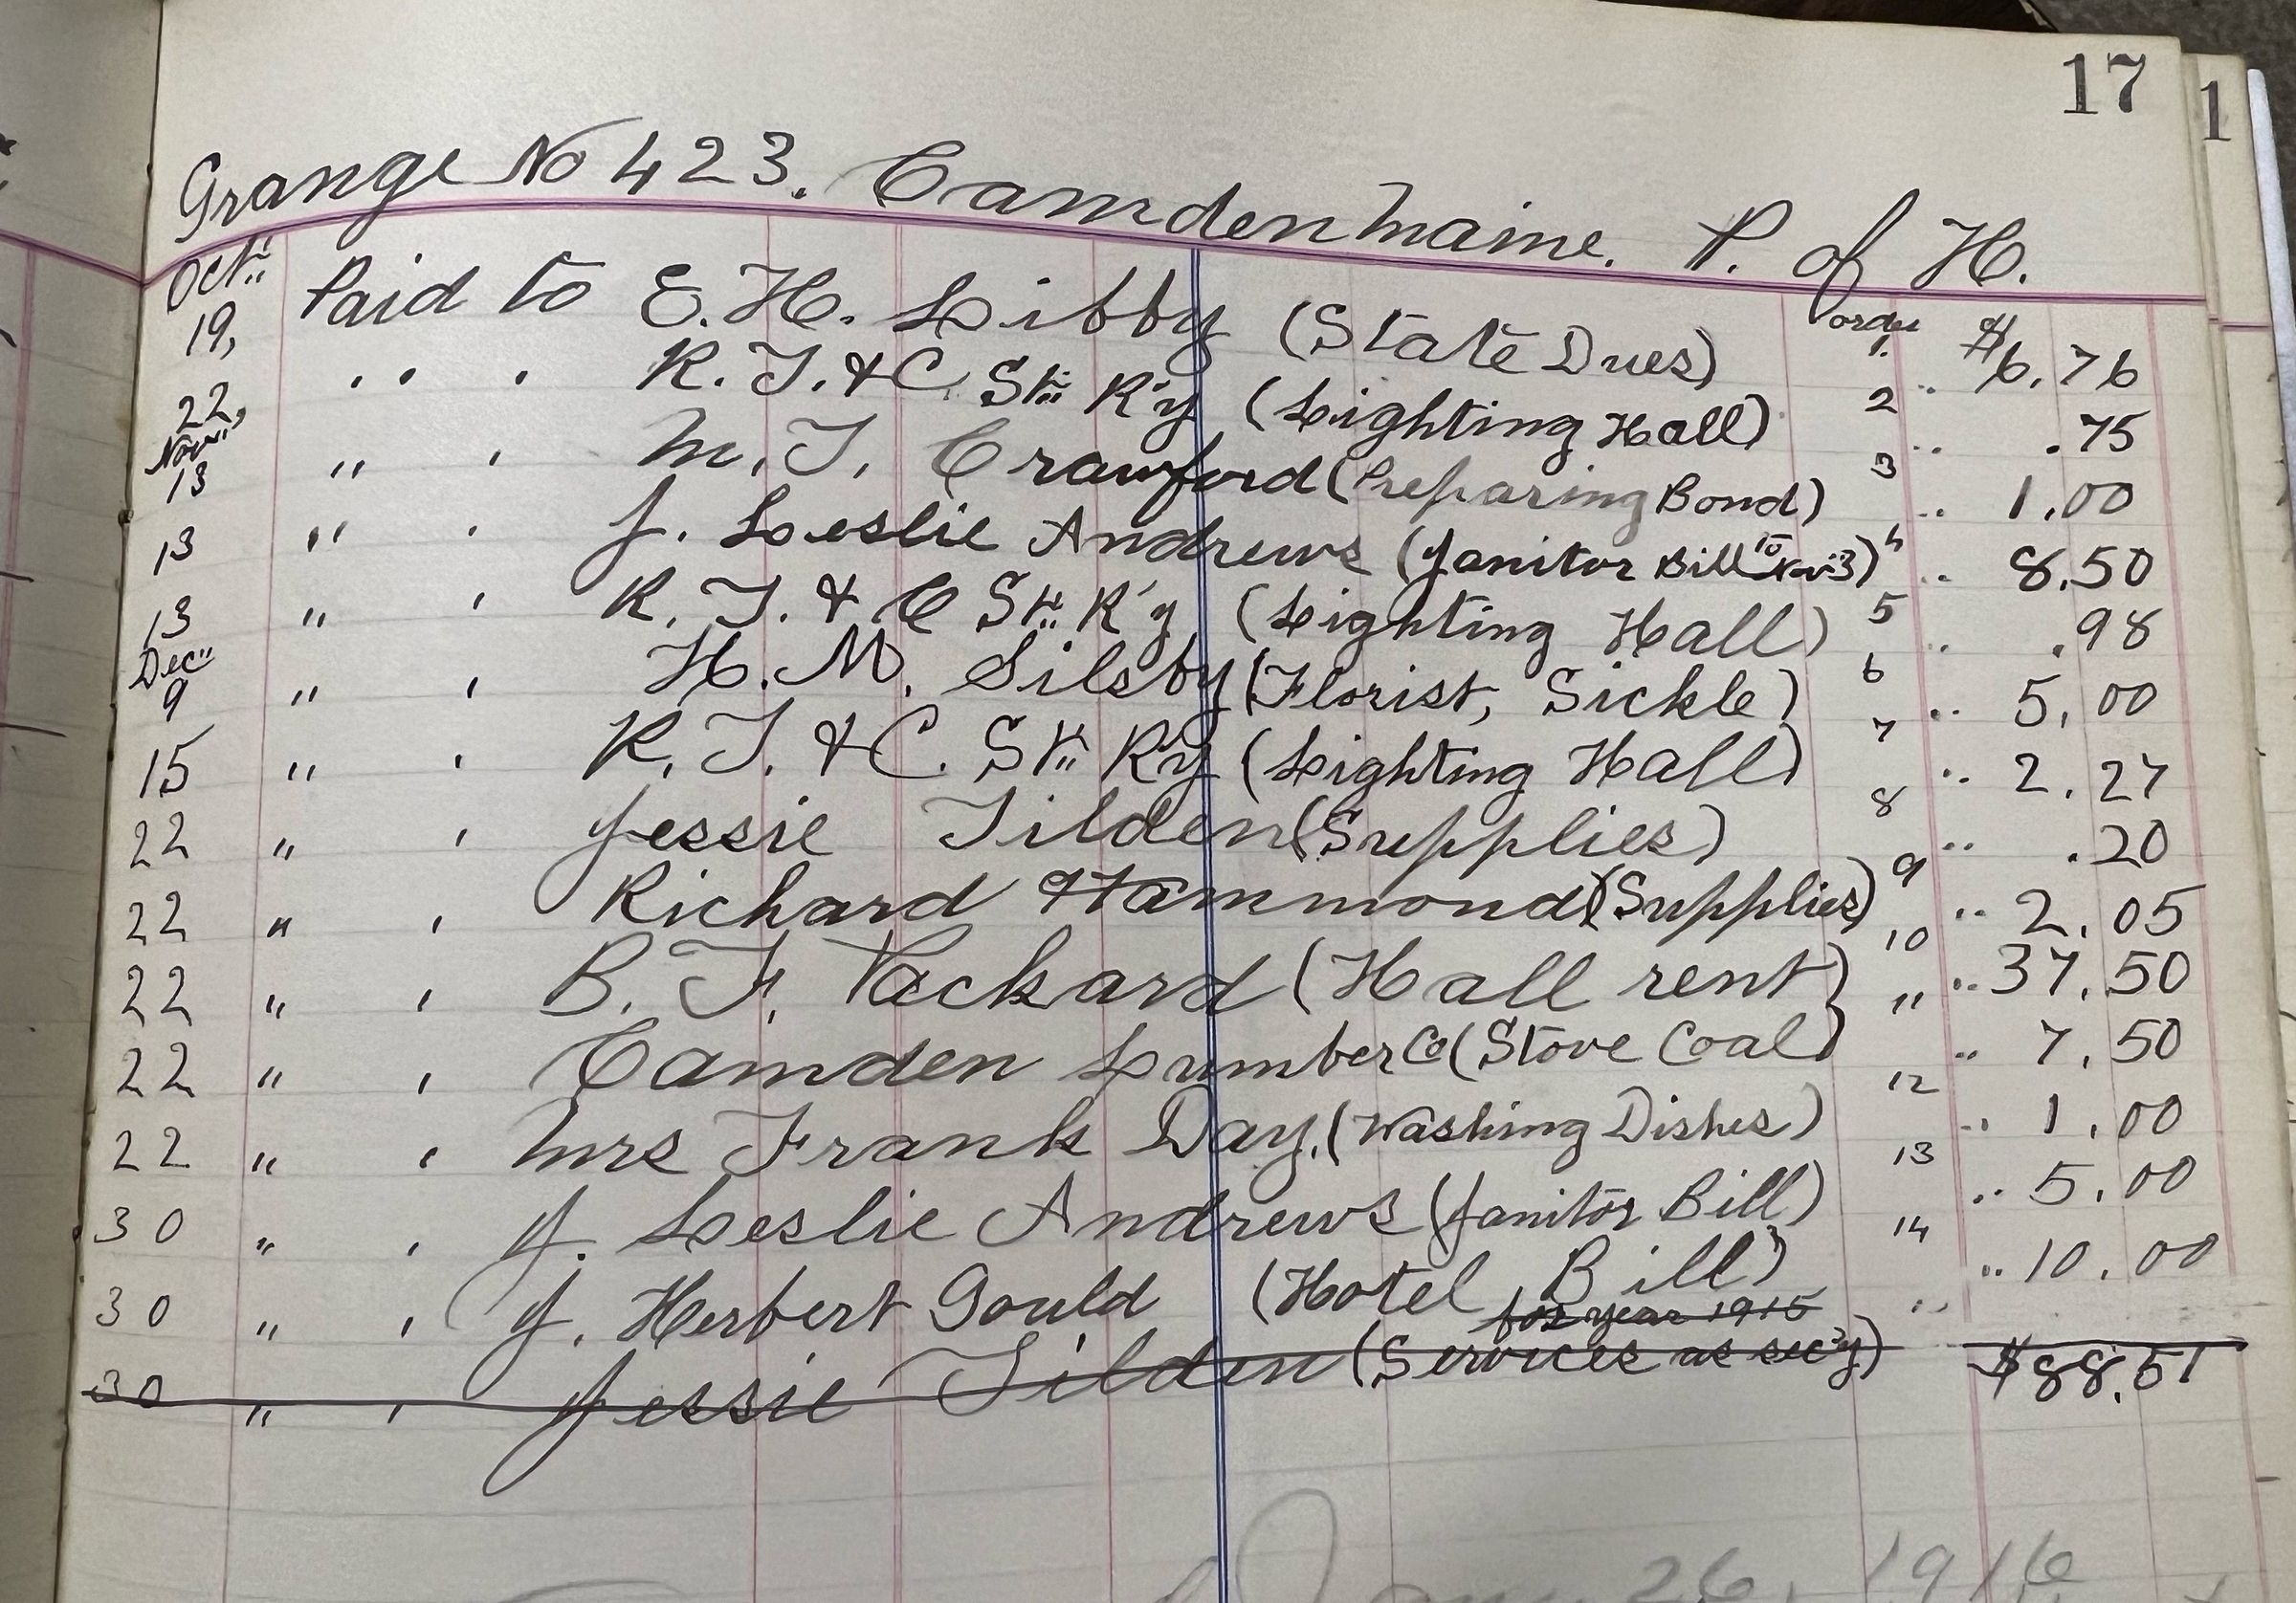 17
1
Grange No 423. Camden Maine. P. of H.
Oct"
19, Paid to E. H. Libby (State Dues) order 1. $6.76
22, " " " R. T. & C. St" R'y (Lighting Hall) 2 " .75
Nov"
13 " " M. T. Crawford (Preparing Bond) 3 " 1.00
13 " " J. Leslie Andrews (Janitor Bill to Nov 3) 4 " 8.50
13 " " R. T. & C St" R'y (Lighting Hall) 5 " .98
Dec"
9 " " H. M. Silsby (Florist, Sickle) 6 " 5.00
15 " " R. T. & C. St" R'y (Lighting Hall) 7 " 2.27
22 " " Jessie Tilden (Supplies) 8 " .20
22 " " Richard Hammond (Supplies) 9 " 2.05
22 " " B. F. Packard (Hall rent) 10 " 37.50
22 " " Camden Lumber Co (Stove Coal) 11 " 7.50
22 " " Mrs Frank Day, (Washing Dishes) 12 " 1.00
30 " " J. Leslie Andrews (Janitor Bill) 13 " 5.00
30 " " J. Herbert Gould (Hotel Bill) 14 " 10.00
for year 1915
30 " " Jessie Tilden (Services as sec'y) "
$88.51
26, 1916